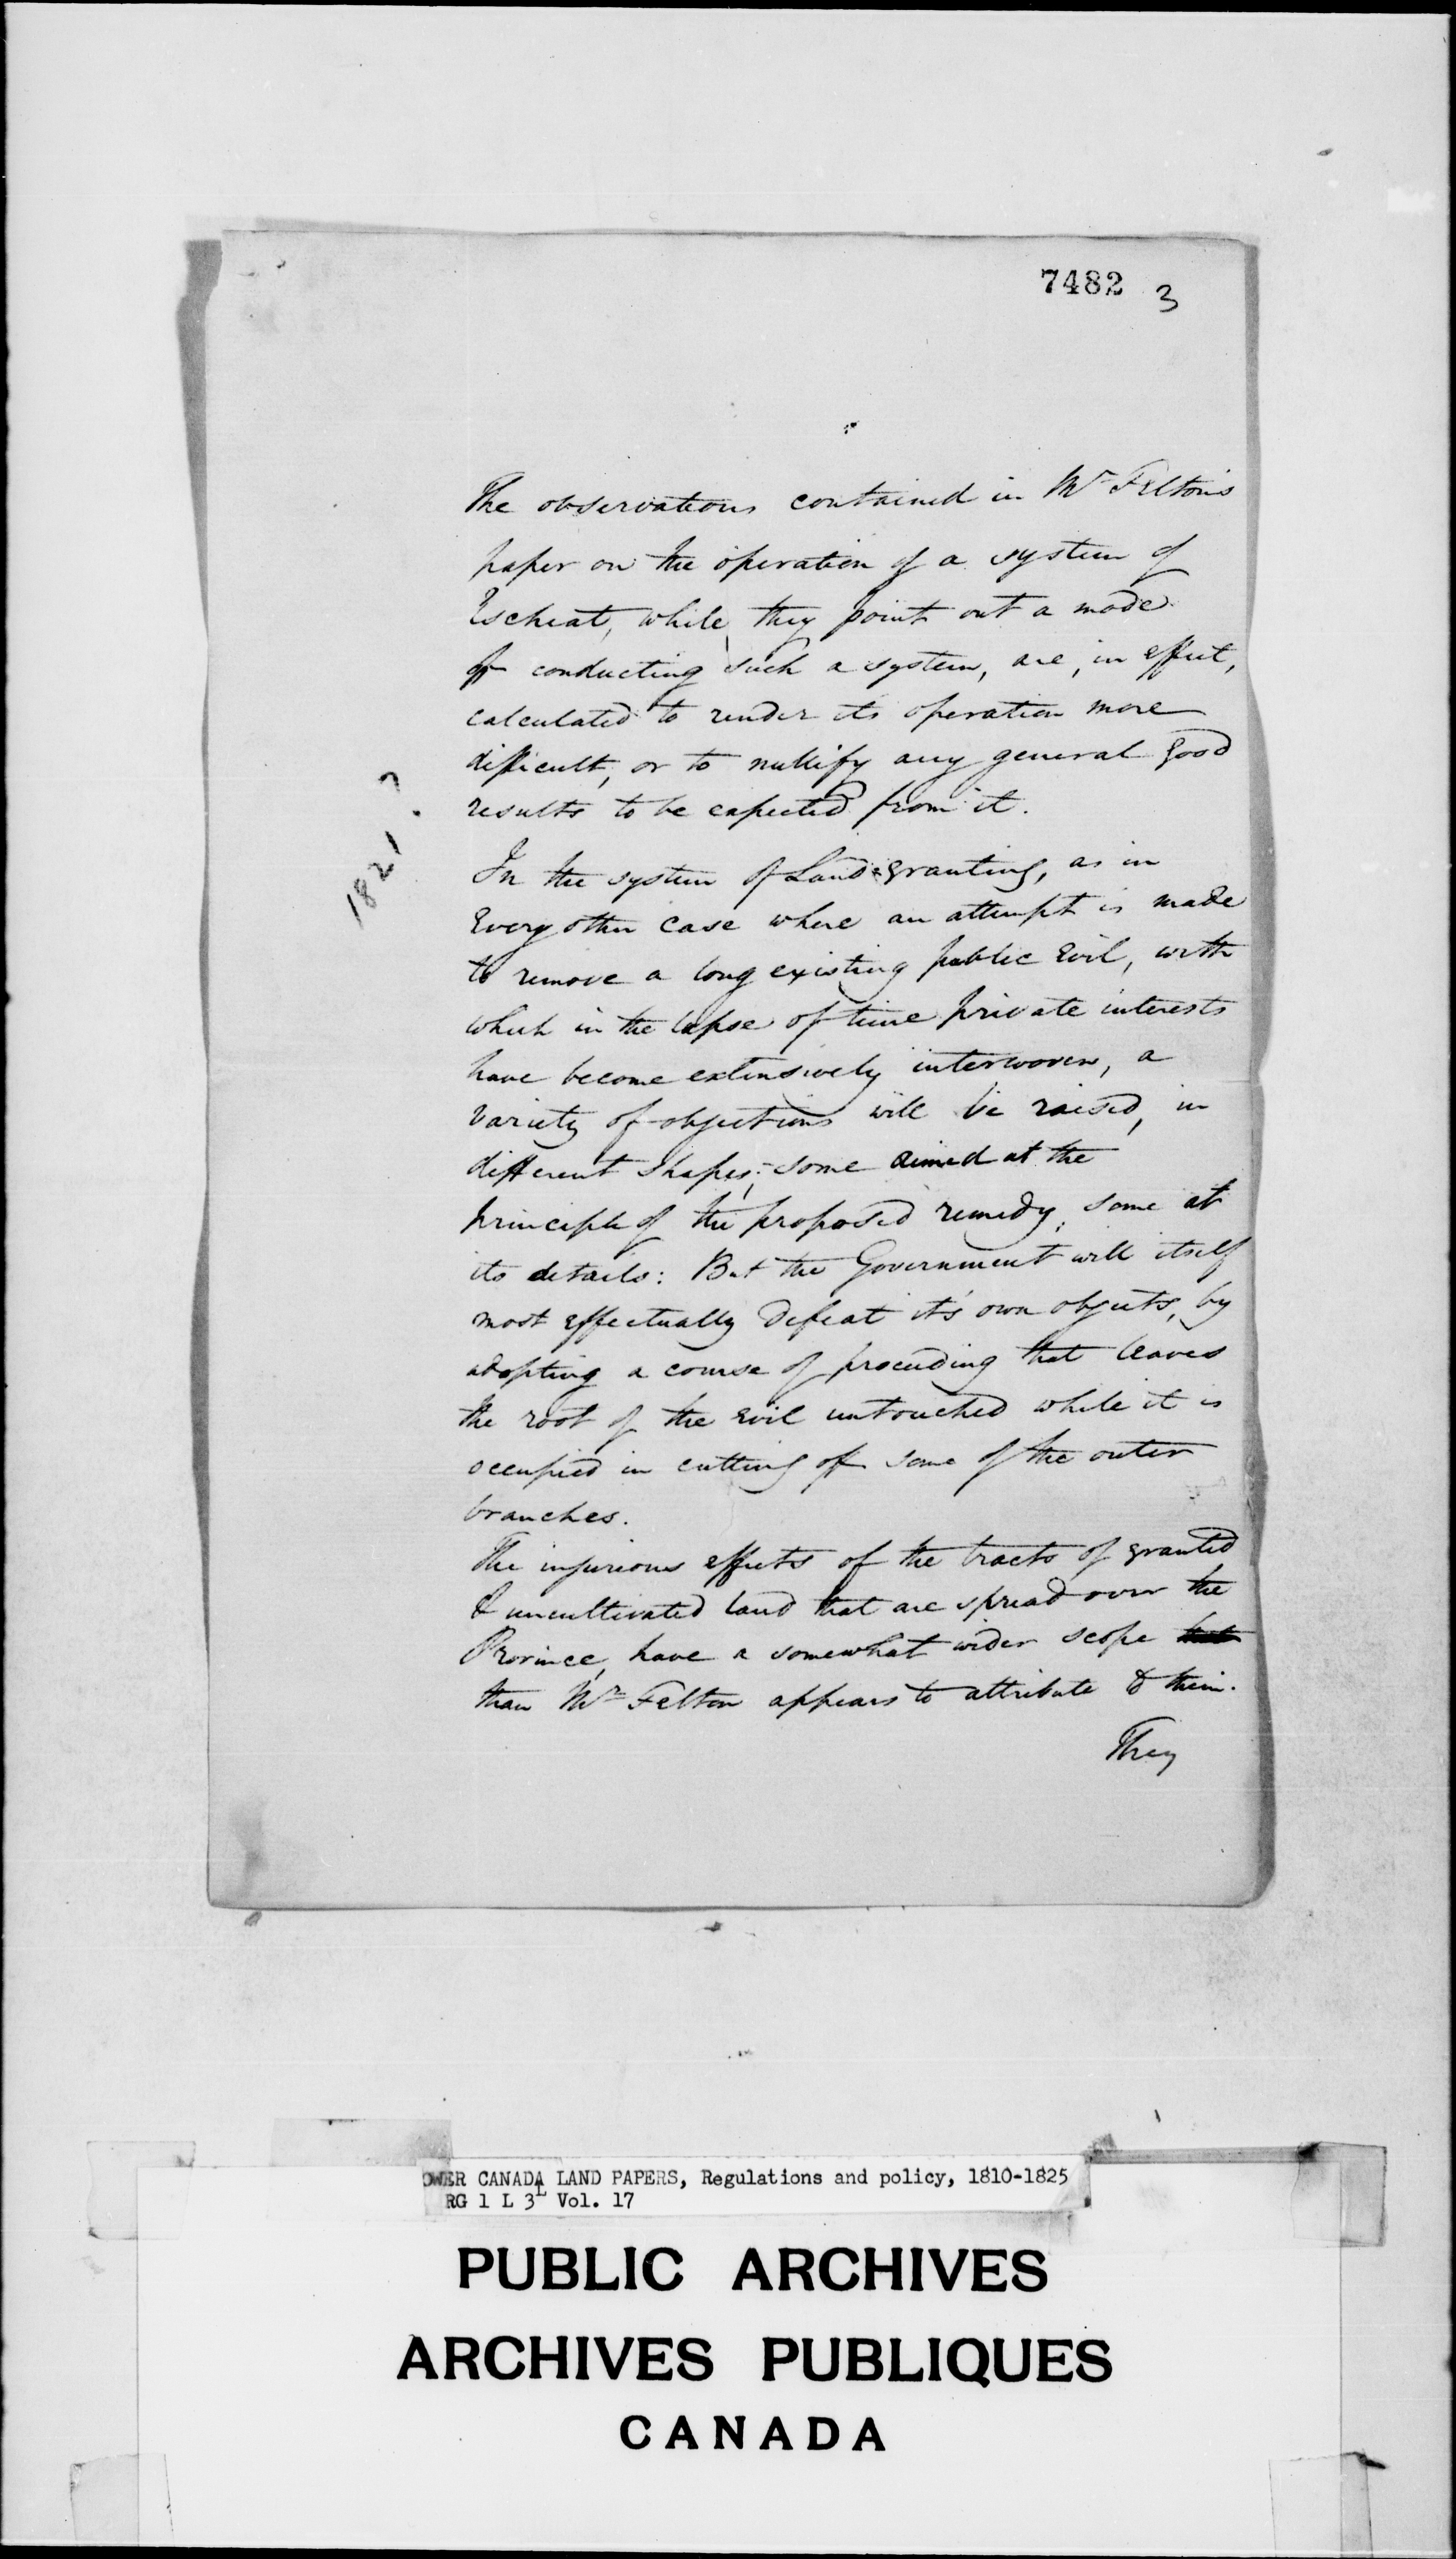 7482 3
The observations contained in Mr Felton's
paper on the operation of a system of
Escheat, while they point out a mode
of conducting such a system, are, in effect,
calculated to render its operation more
difficult, or to nullify any general good
results to be expected from it.
1821?
In the system of Land=granting, as in
every other case where an attempt is made
to remove a long existing public evil, with
which in the lapse of time private interests
have become extensively interwoven, a
variety of objections will be raised, in
different shapes;- some aimed at the
principle of the proposed remedy, some at
its details: But the Government will itself
most effectually defeat it's own objects, by
adopting a course of proceeding that leaves
the root of the evil untouched while it is
occupied in cutting off some of the outer
branches.
The injurious effects of the tracts of granted
& uncultivated land that are spread over the
Province, have a somewhat wider scope
than Mr Felton appears to attribute to them.
They
OWER CANADA LAND PAPERS, Regulations and policy, 1810-1825
RG 1 L 3L Vol. 17
PUBLIC ARCHIVES
ARCHIVES PUBLIQUES
CANADA